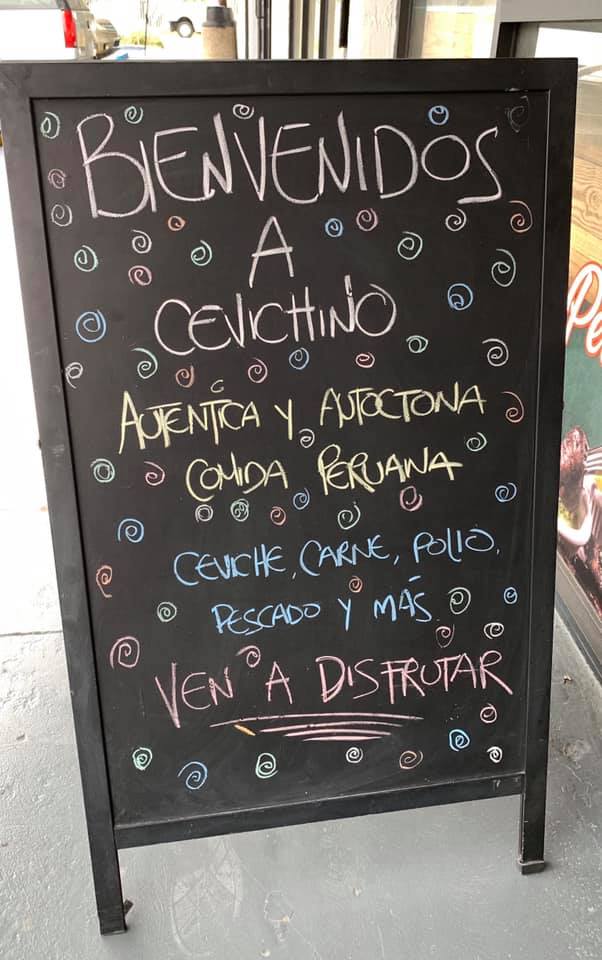 BIENVENIDOS
A
CEVICHINO
AUTENTICA Y AUTOCTONA
COMIDA PERUANA
CEVICHE, CARNE, POLLO,
PESCADO Y MÁS
VEN A DISFRUTAR
Pe